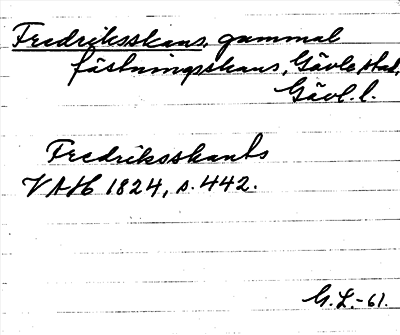 Fredriksskans, gammal
fästningsskans, Gävle stad,
Gävl. l.
Fredriksskants
VAH 1824, s. 442.
G. L. -61.